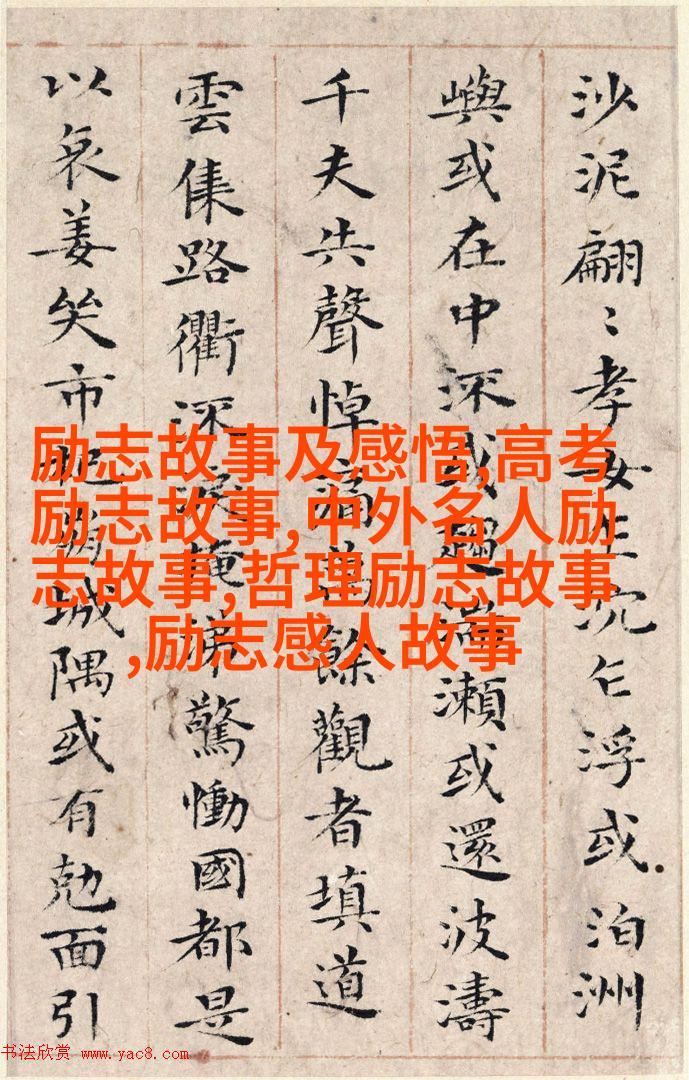 沙泥翩〻孝女乍沉乍浮或泊洲
嶼或在中深或趨湍瀨或還波濤
千夫共聲悼痛萬餘觀者填道
雲集路衢深淚掩涕驚慟國都是
以哀姜哭市杞崩城隅或有勀面引
励志故事及感悟,高考
励志故事,中外名人励
志故事,哲理励志故事
,励志感人故事
书法欣赏 www.yac8.com